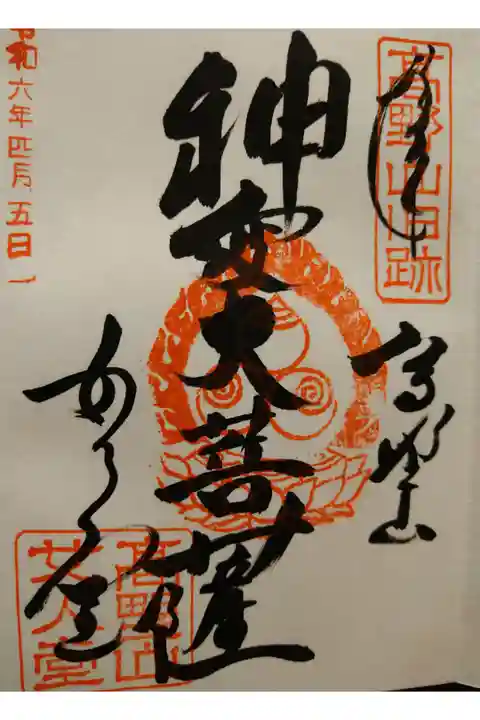 奉拝
高野山旧跡
高野山
神変大菩薩
女人堂
高野山
女人堂
令和六年四月五日